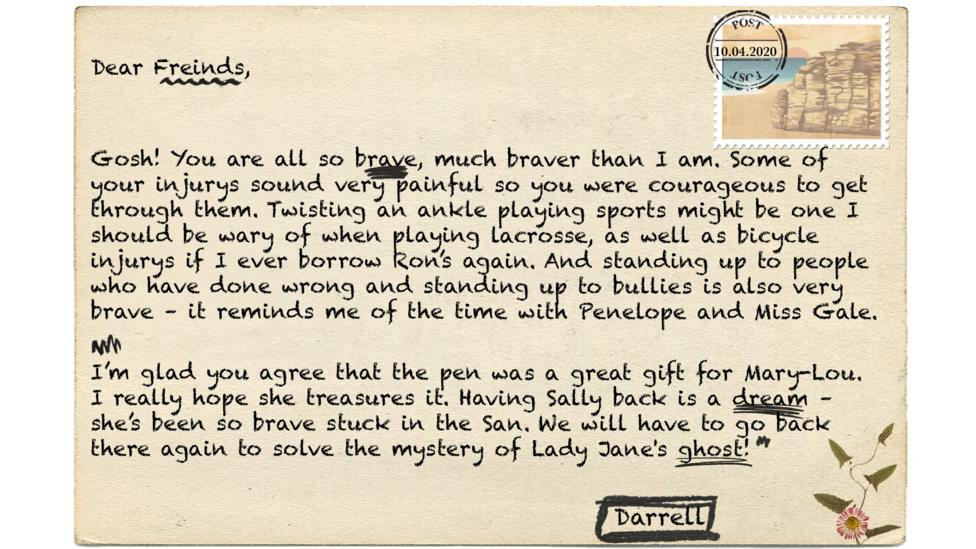 POST
10.04.2020
POST
Dear Freinds,
Gosh! You are all so brave, much braver than I am. Some of
your injurys sound very painful so you were courageous to get
through them. Twisting an ankle playing sports might be one I
should be wary of when playing lacrosse, as well as bicycle
injurys if I ever borrow Ron's again. And standing up to people
who have done wrong and standing up to bullies is also very
brave - it reminds me of the time with Penelope and Miss Gale.
I'm glad you agree that the pen was a great gift for Mary-Lou.
I really hope she treasures it. Having Sally back is a dream -
she's been so brave stuck in the San. We will have to go back
there again to solve the mystery of Lady Jane's ghost!
Darrell